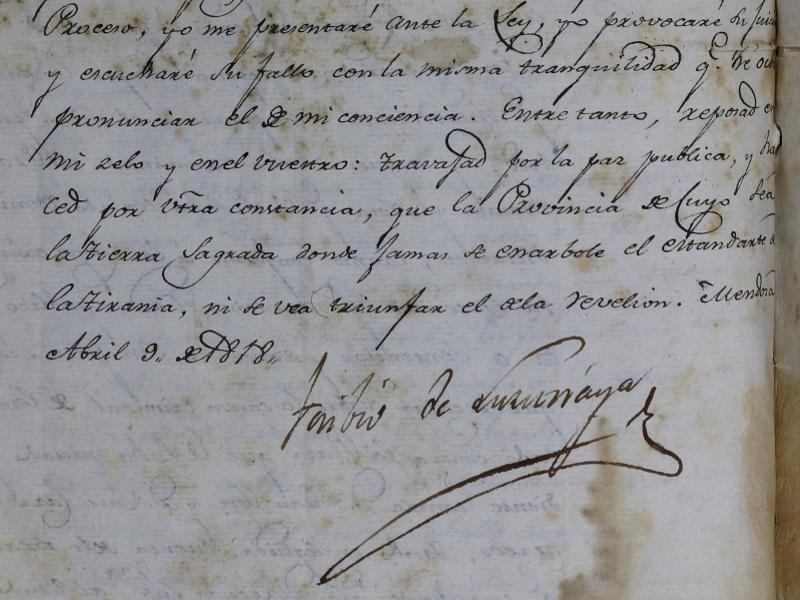 Proceso, yo me presentaré ante la Ley, yo provocaré su juic
y escucharé su fallo con la misma tranquilidad q.e he
pronunciar el de mi conciencia. Entre tanto, reposad en
mi zelo y en el vuestro: travajad por la paz publica, y ha
ced por vtra constancia, que la Provincia de Cuyo sea
la tierra sagrada donde jamas se enarbole el estandarte de
la tirania, ni se vea triunfar el de la revelion. Mendoza
Abril 9, de 1818,,
Toribio de Luzuriaga